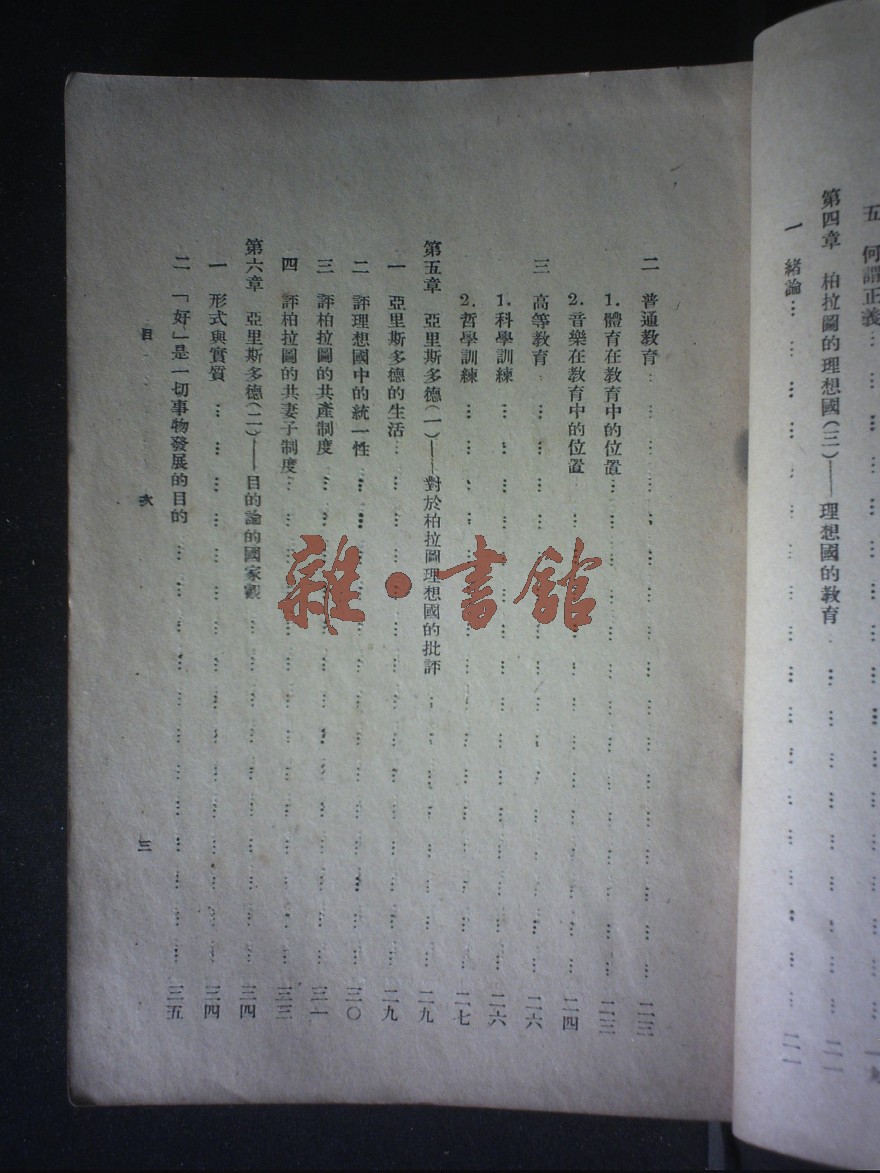 五　何謂正義…………一九
第四章　柏拉圖的理想國(三)——理想國的教育…………二一
一　緒論…………二一
二　普通教育…………二三
1.體育在教育中的位置…………二三
2.音樂在教育中的位置…………二四
三　高等教育…………二六
1.科學訓練…………二六
2.哲學訓練…………二七
第五章　亞里斯多德(一)——對於柏拉圖理想國的批評…………二九
一　亞里斯多德的生活…………二九
二　評理想國中的統一性…………三〇
三　評柏拉圖的共產制度…………三一
四　評柏拉圖的共妻子制度…………三三
第六章　亞里斯多德(二)——目的論的國家觀…………三四
一　形式與實質…………三四
二　「好」是一切事物發展的目的…………三五
目　次
三
雜·書館